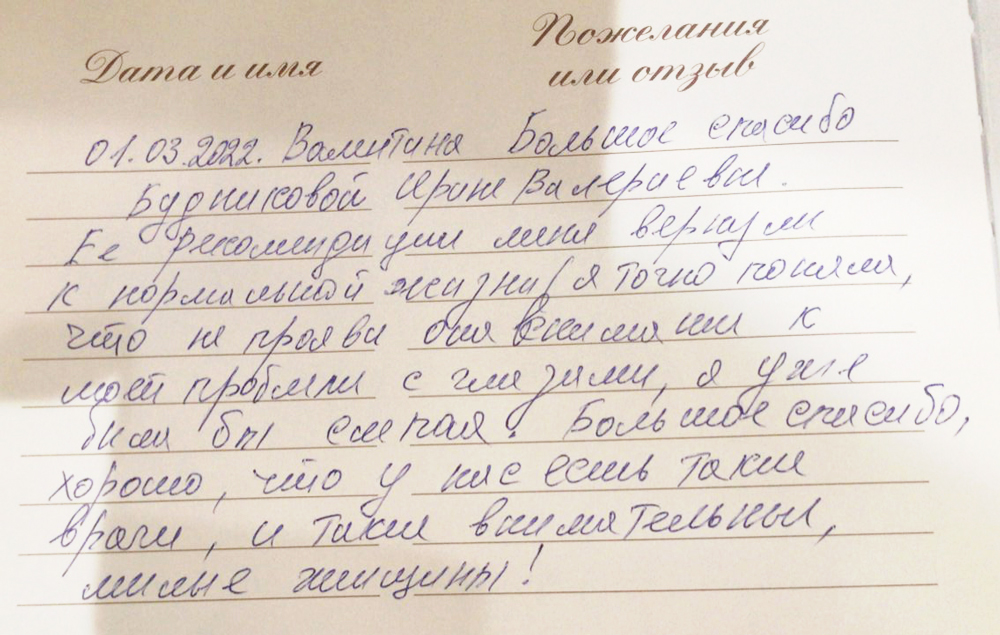 Дата и имя
Пожелания
или отзыв
01.03.2022. Валентина Большое спасибо
Будниковой Ирине Валериевны.
Ее рекомендации меня вернули
к нормальной жизни (я точно поняла,
что не прояви она внимания к
моей проблеме с глазами, я уже
была бы слепая. Большое спасибо,
хорошо, что у нас есть такие
врачи, и такие внимательные,
милые женщины!